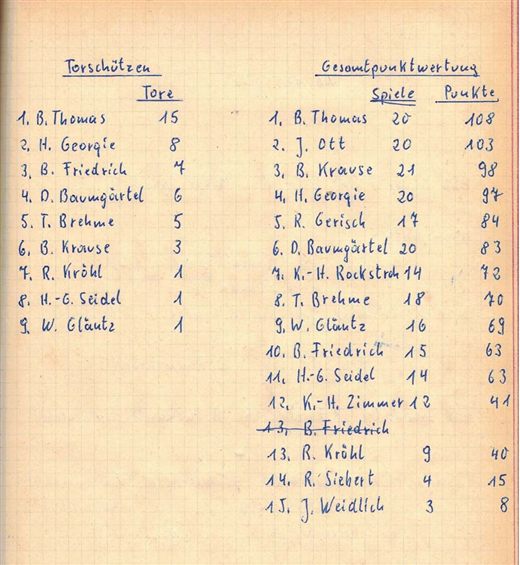 Torschützen
Tore
1. B. Thomas 15
2. H. Georgie 8
3. B. Friedrich 7
4. D. Baumgärtel 6
5. T. Brehme 5
6. B. Krause 3
7. R. Kröhl 1
8. H.-G. Seidel 1
9. W. Gläntz 1
Gesamtpunktwertung
Spiele Punkte
1. B. Thomas 20 108
2. J. Ott 20 103
3. B. Krause 21 98
4. H. Georgie 20 97
5. R. Gerisch 17 84
6. D. Baumgärtel 20 83
7. K.-H. Rockstroh 14 72
8. T. Brehme 18 70
9. W. Gläntz 16 69
10. B. Friedrich 15 63
11. H.-G. Seidel 14 63
12. K.-H. Zimmer 12 41
13. B. Friedrich
13. R. Kröhl 9 40
14. R. Siebert 4 15
15. J. Weidlich 3 8